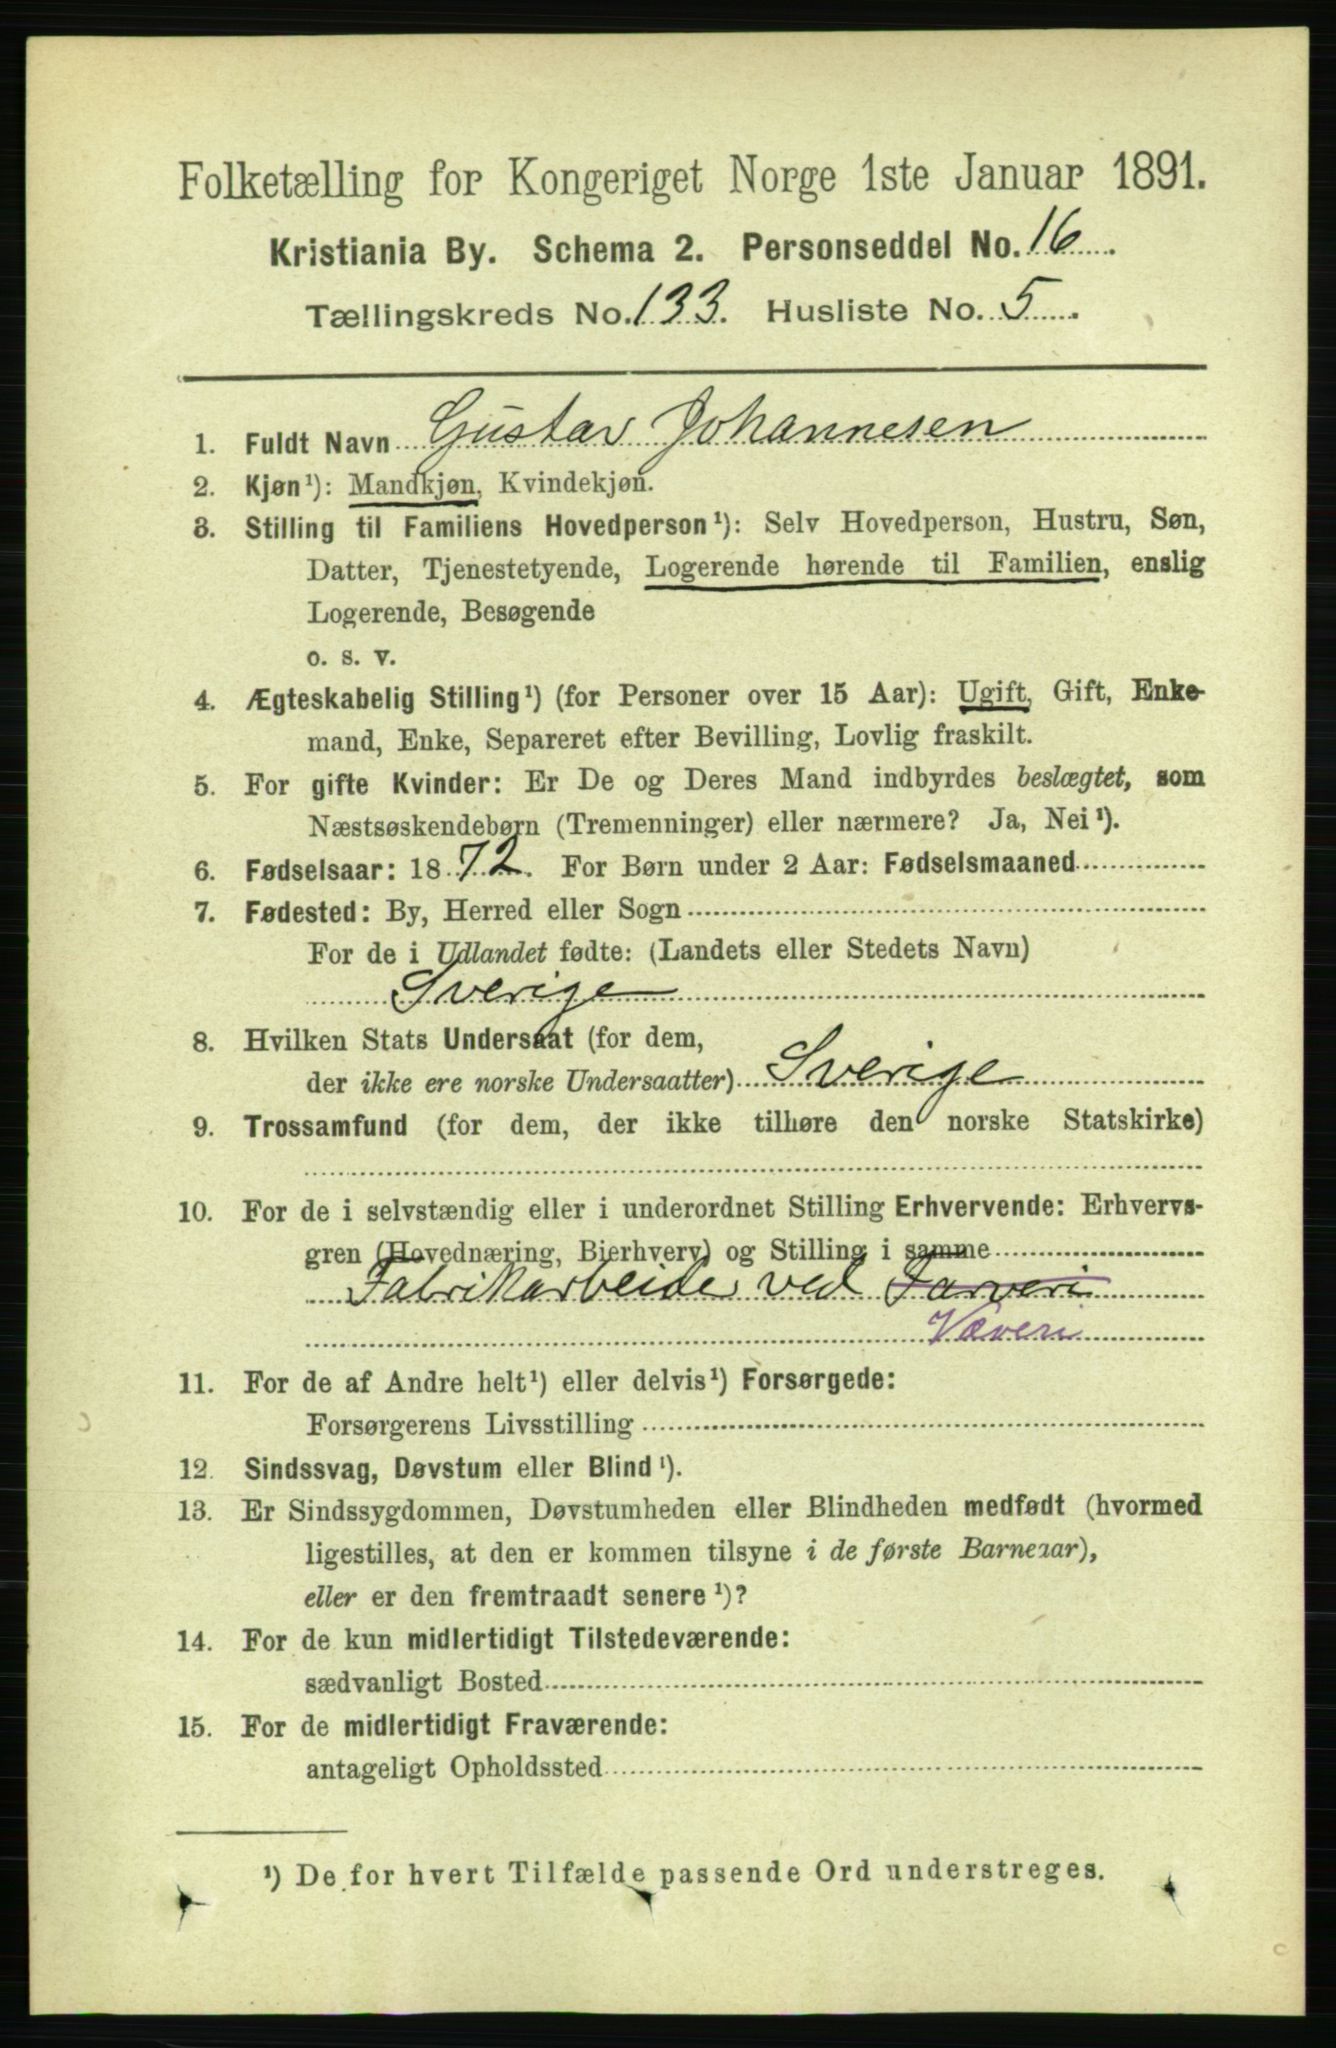 Folketælling for Kongeriget Norge 1ste Januar 1891.
Kristiania By. Schema 2. Personseddel No. 16
Tællingskreds No. 133. Husliste No. 5
1. Fuldt Navn Gustav Johannesen
2. Kjøn¹): Mandkjøn, Kvindekjøn.
3. Stilling til Familiens Hovedperson¹): Selv Hovedperson, Hustru, Søn,
Datter, Tjenestetyende, Logerende hørende til Familien, enslig
Logerende, Besøgende
o. s. v.
4. Ægteskabelig Stilling¹) (for Personer over 15 Aar): Ugift, Gift, Enke-
mand, Enke, Separeret efter Bevilling, Lovlig fraskilt.
5. For gifte Kvinder: Er De og Deres Mand indbyrdes beslægtet, som
Næstsøskendebørn (Tremenninger) eller nærmere? Ja, Nei¹).
6. Fødselsaar: 1872. For Børn under 2 Aar: Fødselsmaaned
7. Fødested: By, Herred eller Sogn
For de i Udlandet fødte: (Landets eller Stedets Navn)
Sverige
8. Hvilken Stats Undersaat (for dem,
der ikke ere norske Undersaatter) Sverige
9. Trossamfund (for dem, der ikke tilhøre den norske Statskirke)
10. For de i selvstændig eller i underordnet Stilling Erhvervende: Erhvervs-
gren (Hovednæring, Bierhverv) og Stilling i samme
Fabrikarbeider ved Farveri
Væveri
11. For de af Andre helt¹) eller delvis¹) Forsørgede:
Forsørgerens Livsstilling
12. Sindssvag, Døvstum eller Blind¹).
13. Er Sindssygdommen, Døvstumheden eller Blindheden medfødt (hvormed
ligestilles, at den er kommen tilsyne i de første Barneaar),
eller er den fremtraadt senere¹)?
14. For de kun midlertidigt Tilstedeværende:
sædvanligt Bosted
15. For de midlertidigt Fraværende:
antageligt Opholdssted
¹) De for hvert Tilfælde passende Ord understreges.